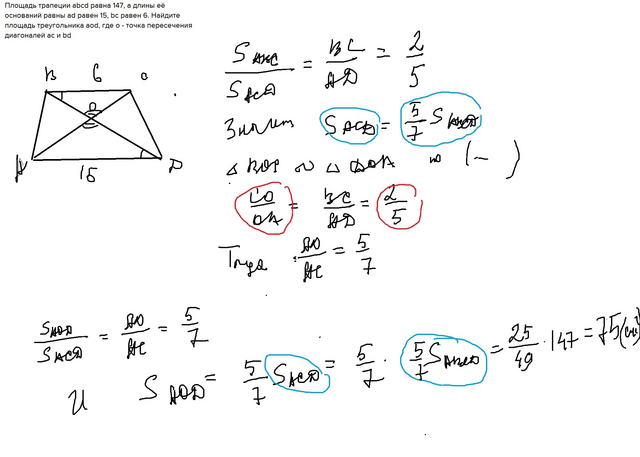 Площадь трапеции abcd равна 147, а длины её
оснований равны ad равен 15, bc равен 6. Найдите
площадь треугольника aod, где o - точка пересечения
диагоналей ac и bd
B 6 C
O
A 15 D
S ABC / S ACD = BC / AD = 2 / 5
Значит S ACD = 5/7 S ABCD
△ BOC ∾ △ DOA по (– )
CO / OA = BC / AD = 2 / 5
Тогда AO / AC = 5 / 7
S AOD / S ACD = AO / AC = 5 / 7
И S AOD = 5/7 S ACD = 5/7 · 5/7 S ABCD = 25/49 · 147 = 75